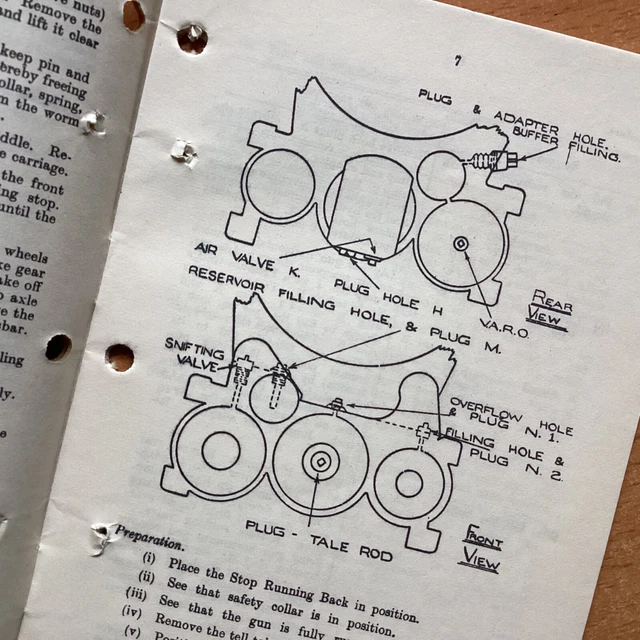 nuts)
Remove the
and lift it clear
keep pin and
ereby freeing
ollar, spring,
m the worm
ddle. Re-
e carriage.
the front
ng stop.
until the
wheels
ke gear
ake off
axle
ve the
bar.
ling
ly.
e
7
PLUG & ADAPTER HOLE.
BUFFER FILLING.
AIR VALVE K. PLUG HOLE H
V.A.R.O.
REAR
VIEW
RESERVOIR FILLING HOLE, & PLUG M.
SNIFTING
VALVE
OVERFLOW HOLE
& PLUG N. 1.
FILLING HOLE &
PLUG N. 2.
PLUG - TALE ROD
FRONT
VIEW
Preparation.
(i) Place the Stop Running Back in position.
(ii) See that safety collar is in position.
(iii) See that the gun is fully
(iv) Remove the tell
(v)